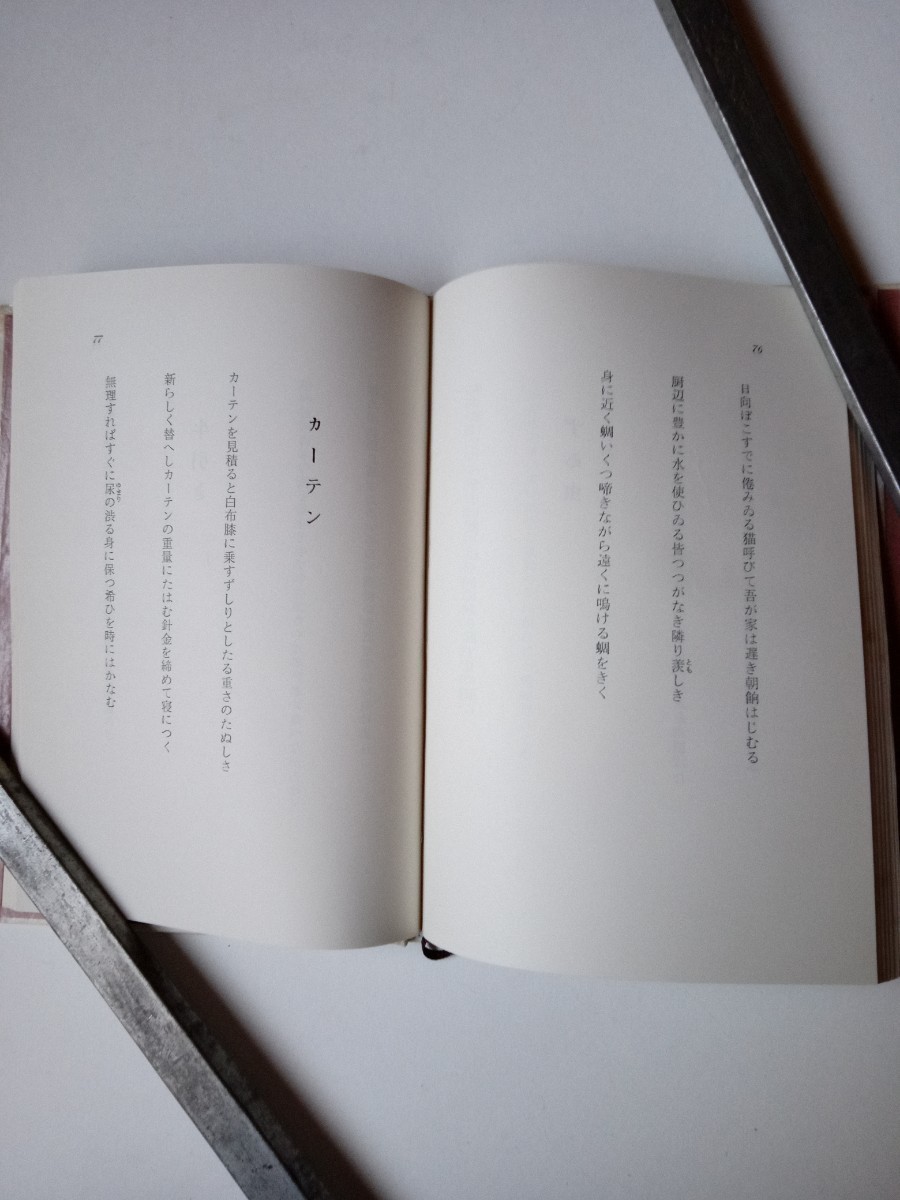 76
日向ぼこすでに倦みゐる猫呼びて吾が家は遅き朝餉はじむる
厨辺に豊かに水を使ひゐる皆つつがなき隣り羨しき
とも
身に近く蜩いくつ啼きながら遠くに鳴ける蜩をきく
カーテン
カーテンを見積ると白布膝に乗すずしりとしたる重さのたぬしさ
新らしく替へしカーテンの重量にたはむ針金を締めて寝につく
無理すればすぐに尿の渋る身に保つ希ひを時にはかなむ
77